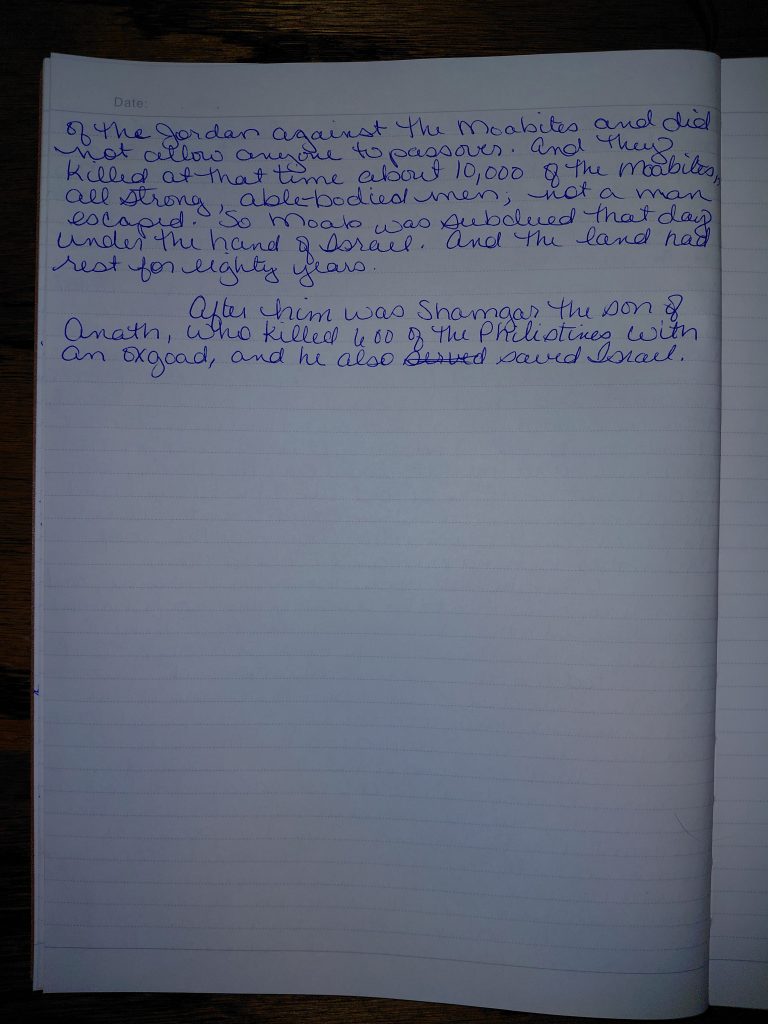 Date:
of the Jordan against the Moabites and did
not allow anyone to pass over. And they
killed at that time about 10,000 of the Moabites,
all strong, able-bodied men; not a man
escaped. So Moab was subdued that day
under the hand of Israel. And the land had
rest for eighty years.
After him was Shamgar the son of
Anath, who killed 600 of the Philistines with
an oxgoad, and he also served saved Israel.